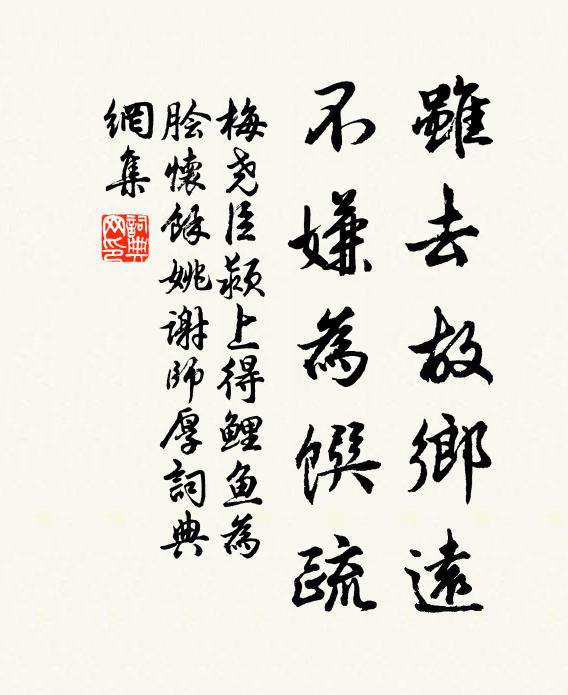 雖去故鄉遠
不嫌為饌疏
梅尧臣蘋上得鲤鱼為
膾懷餘姚謝師厚詞典
網集
詞典网印